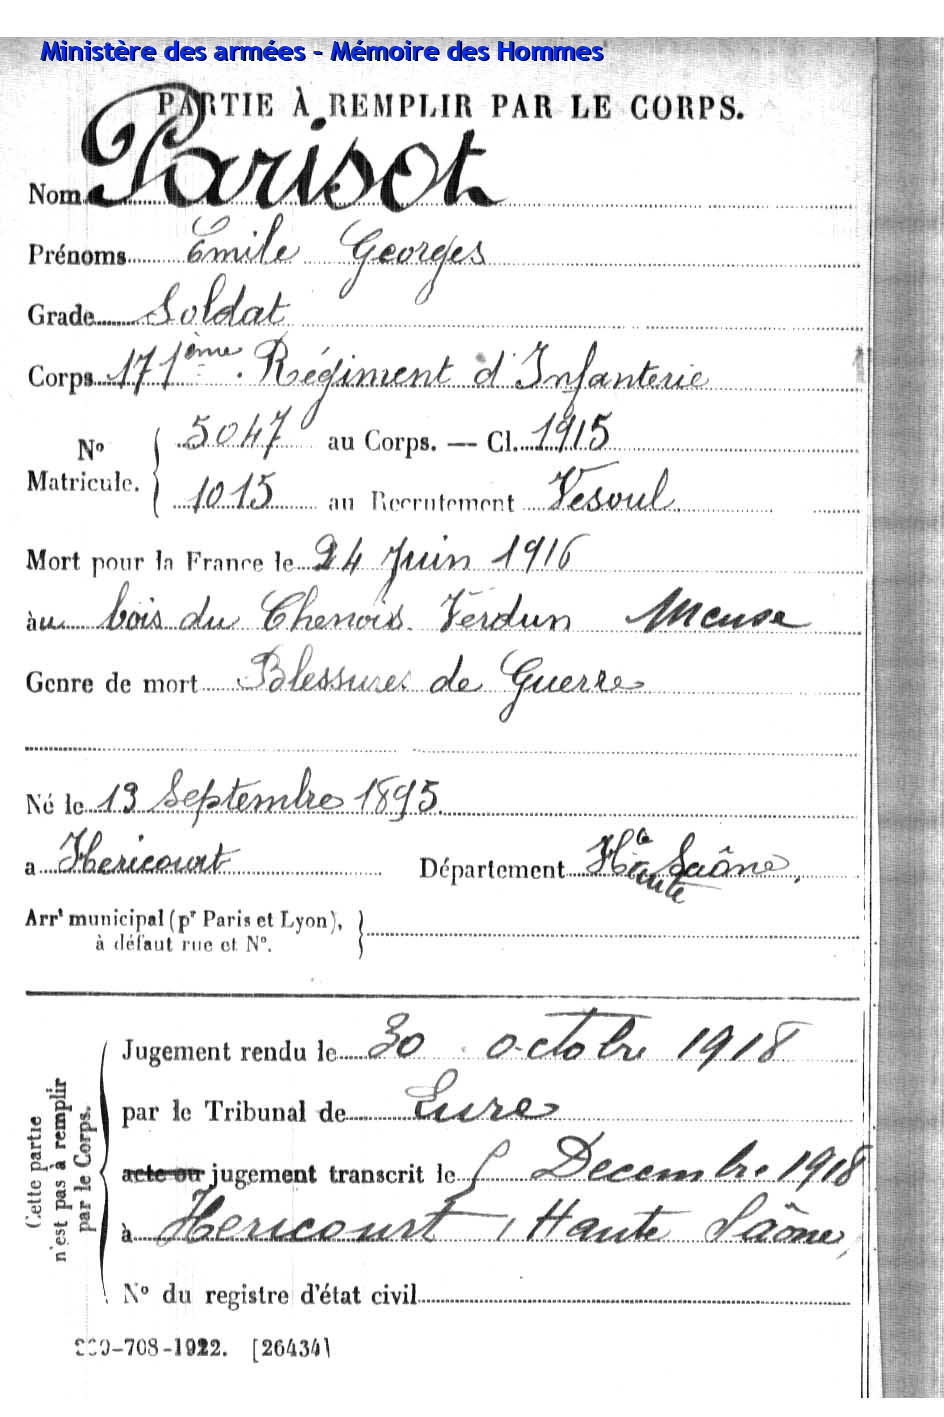 Ministère des armées - Mémoire des Hommes
PARTIE À REMPLIR PAR LE CORPS.
Nom Parisot
Prénoms Emile Georges
Grade Soldat
Corps 171ème Régiment d'Infanterie
No Matricule. { 5047 au Corps. — Cl. 1915
1015 au Recrutement Vesoul
Mort pour la France le 24 Juin 1916
à au bois du Chenois Verdun Meuse
Genre de mort Blessures de Guerre
Né le 13 Septembre 1895
a Hericourt Département Hte Haute Saône,
Arrt municipal (pr Paris et Lyon),
à défaut rue et No.
Cette partie
n'est pas à remplir
par le Corps.
Jugement rendu le 30 octobre 1918
par le Tribunal de Lure
acte ou jugement transcrit le 5 Decembre 1918
à Hericourt, Haute Saône,
No du registre d'état civil
-708-1922. [26434]